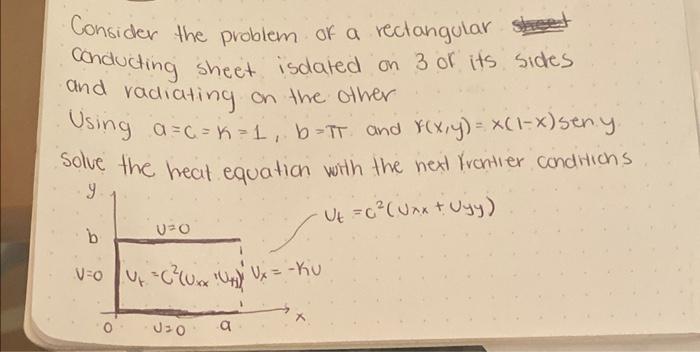 Consider the problem of a rectangular
conducting sheet isolated on 3 of its sides
and radiating on the other
Using a=c=k=1, b=π and f(x,y)=x(1-x)sen y
solve the heat equation with the next frontier conditions
y
Ut = c²(Uxx + Uyy)
b
U=0
U=0
Ut = c²(Uxx + Uyy)
Ux = -kU
x
0
U=0
a